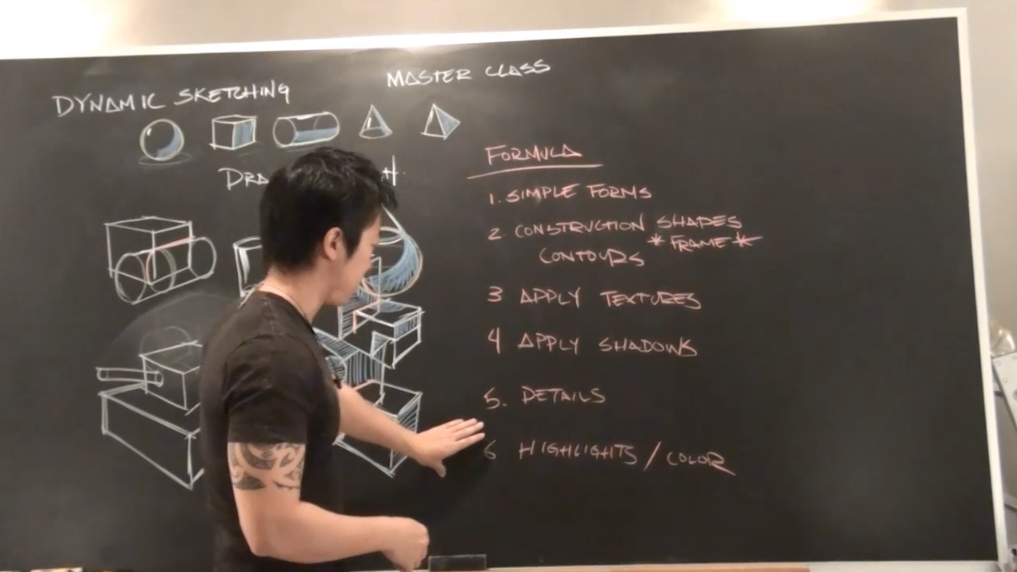 MASTER CLASS
DYNAMIC SKETCHING
FORMULA
1. SIMPLE FORMS
2. CONSTRUCTION SHAPES
CONTOURS *FRAME*
3 APPLY TEXTURES
4 APPLY SHADOWS
5. DETAILS
6 HIGHLIGHTS / COLOR